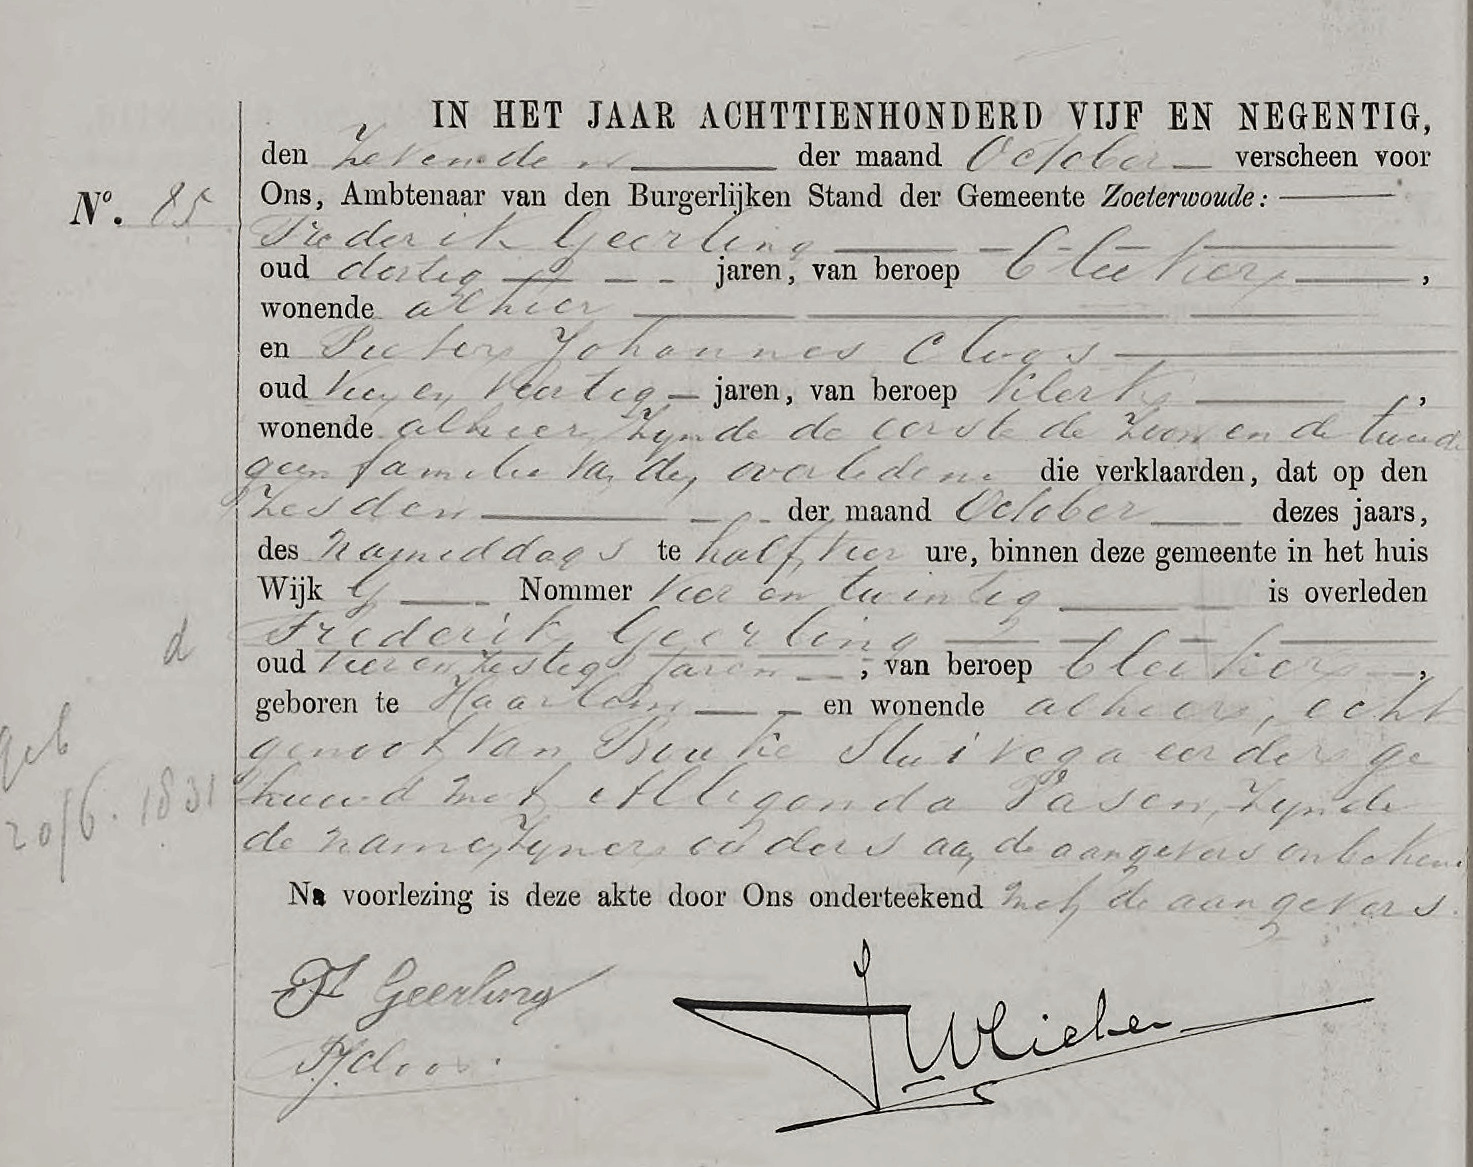 IN HET JAAR ACHTTIENHONDERD VIJF EN NEGENTIG,
den zevenden der maand October verscheen voor
No. 85 Ons, Ambtenaar van den Burgerlijken Stand der Gemeente Zoeterwoude:
Frederik Geerling
oud dertig jaren, van beroep bleeker,
wonende alhier
en Pieter Johannes Cloos
oud vier en veertig jaren, van beroep klerk,
wonende alhier, zynde de eerste de zoon en de tweede
geen familie van den overledene die verklaarden, dat op den
zesden der maand October dezes jaars,
des namiddags te half vier ure, binnen deze gemeente in het huis
Wijk G Nommer vier en twintig is overleden
Frederik Geerling
d
oud vier en zestig jaren, van beroep bleeker,
geboren te Haarlem en wonende alhier, echt
geb
genoot van Sluivega eerder ge
20/6. 1831
huwd met Allegonda Pasen, zynde
de namen zyner ouders aan de aangevers onbekend
Na voorlezing is deze akte door Ons onderteekend met de aangevers.
F Geerling
PJCloos